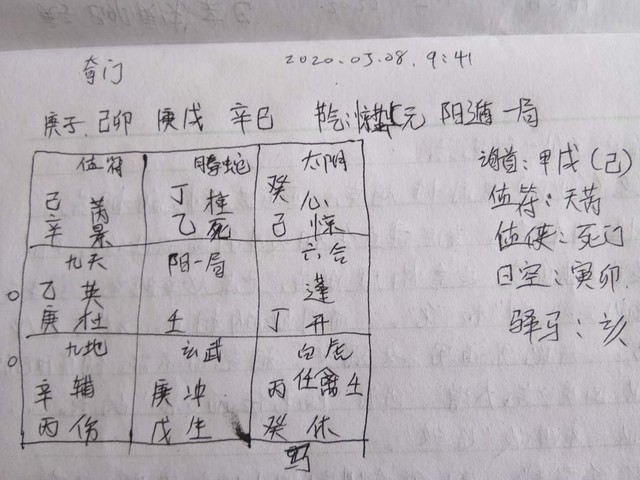 奇门 2020.03.08. 9:41
庚子 己卯 庚戌 辛巳 节气:惊蛰上元 阳遁一局
值符
己 芮
辛 景
腾蛇
丁 柱
乙 死
太阴
癸 心
己 惊
九天
乙 英
庚 杜
阳一局
壬
六合
蓬
丁 开
九地
辛 辅
丙 伤
玄武
庚 冲
戊 生
白虎
丙 任 禽 壬
癸 休
甲戌(己)
值符:天芮
值使:死门
日空:寅卯.
驿马:亥